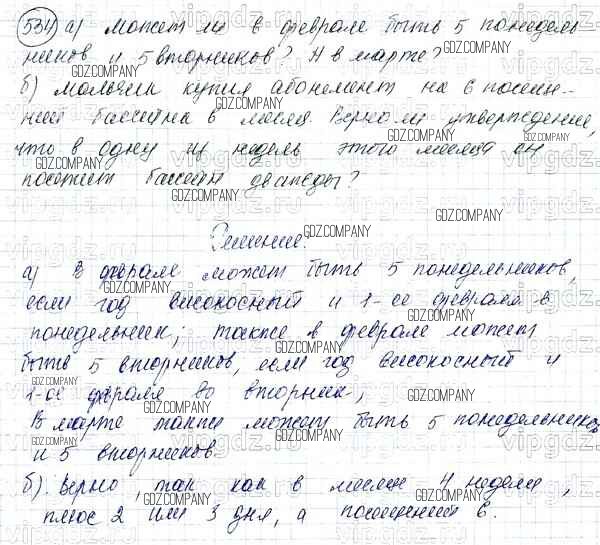 534 а) может ли в феврале быть 5 понедель-
ников и 5 вторников? А в марте?
б) мальчик купил абонемент на 6 посеще-
ний бассейна в месяц. Верно ли утверждение,
что в одну из недель этого месяца он
посетит бассейн дважды?
Решение.
а) В феврале может быть 5 понедельников,
если год високосный и 1-ое февраля в
понедельник; также в феврале может
быть 5 вторников, если год високосный и
1-ое февраля во вторник;
В марте также может быть 5 понедельников
и 5 вторников.
б). Верно, так как в месяце 4 недели,
плюс 2 или 3 дня, а посещений 6.
GDZ.COMPANY
vipgdz.ru